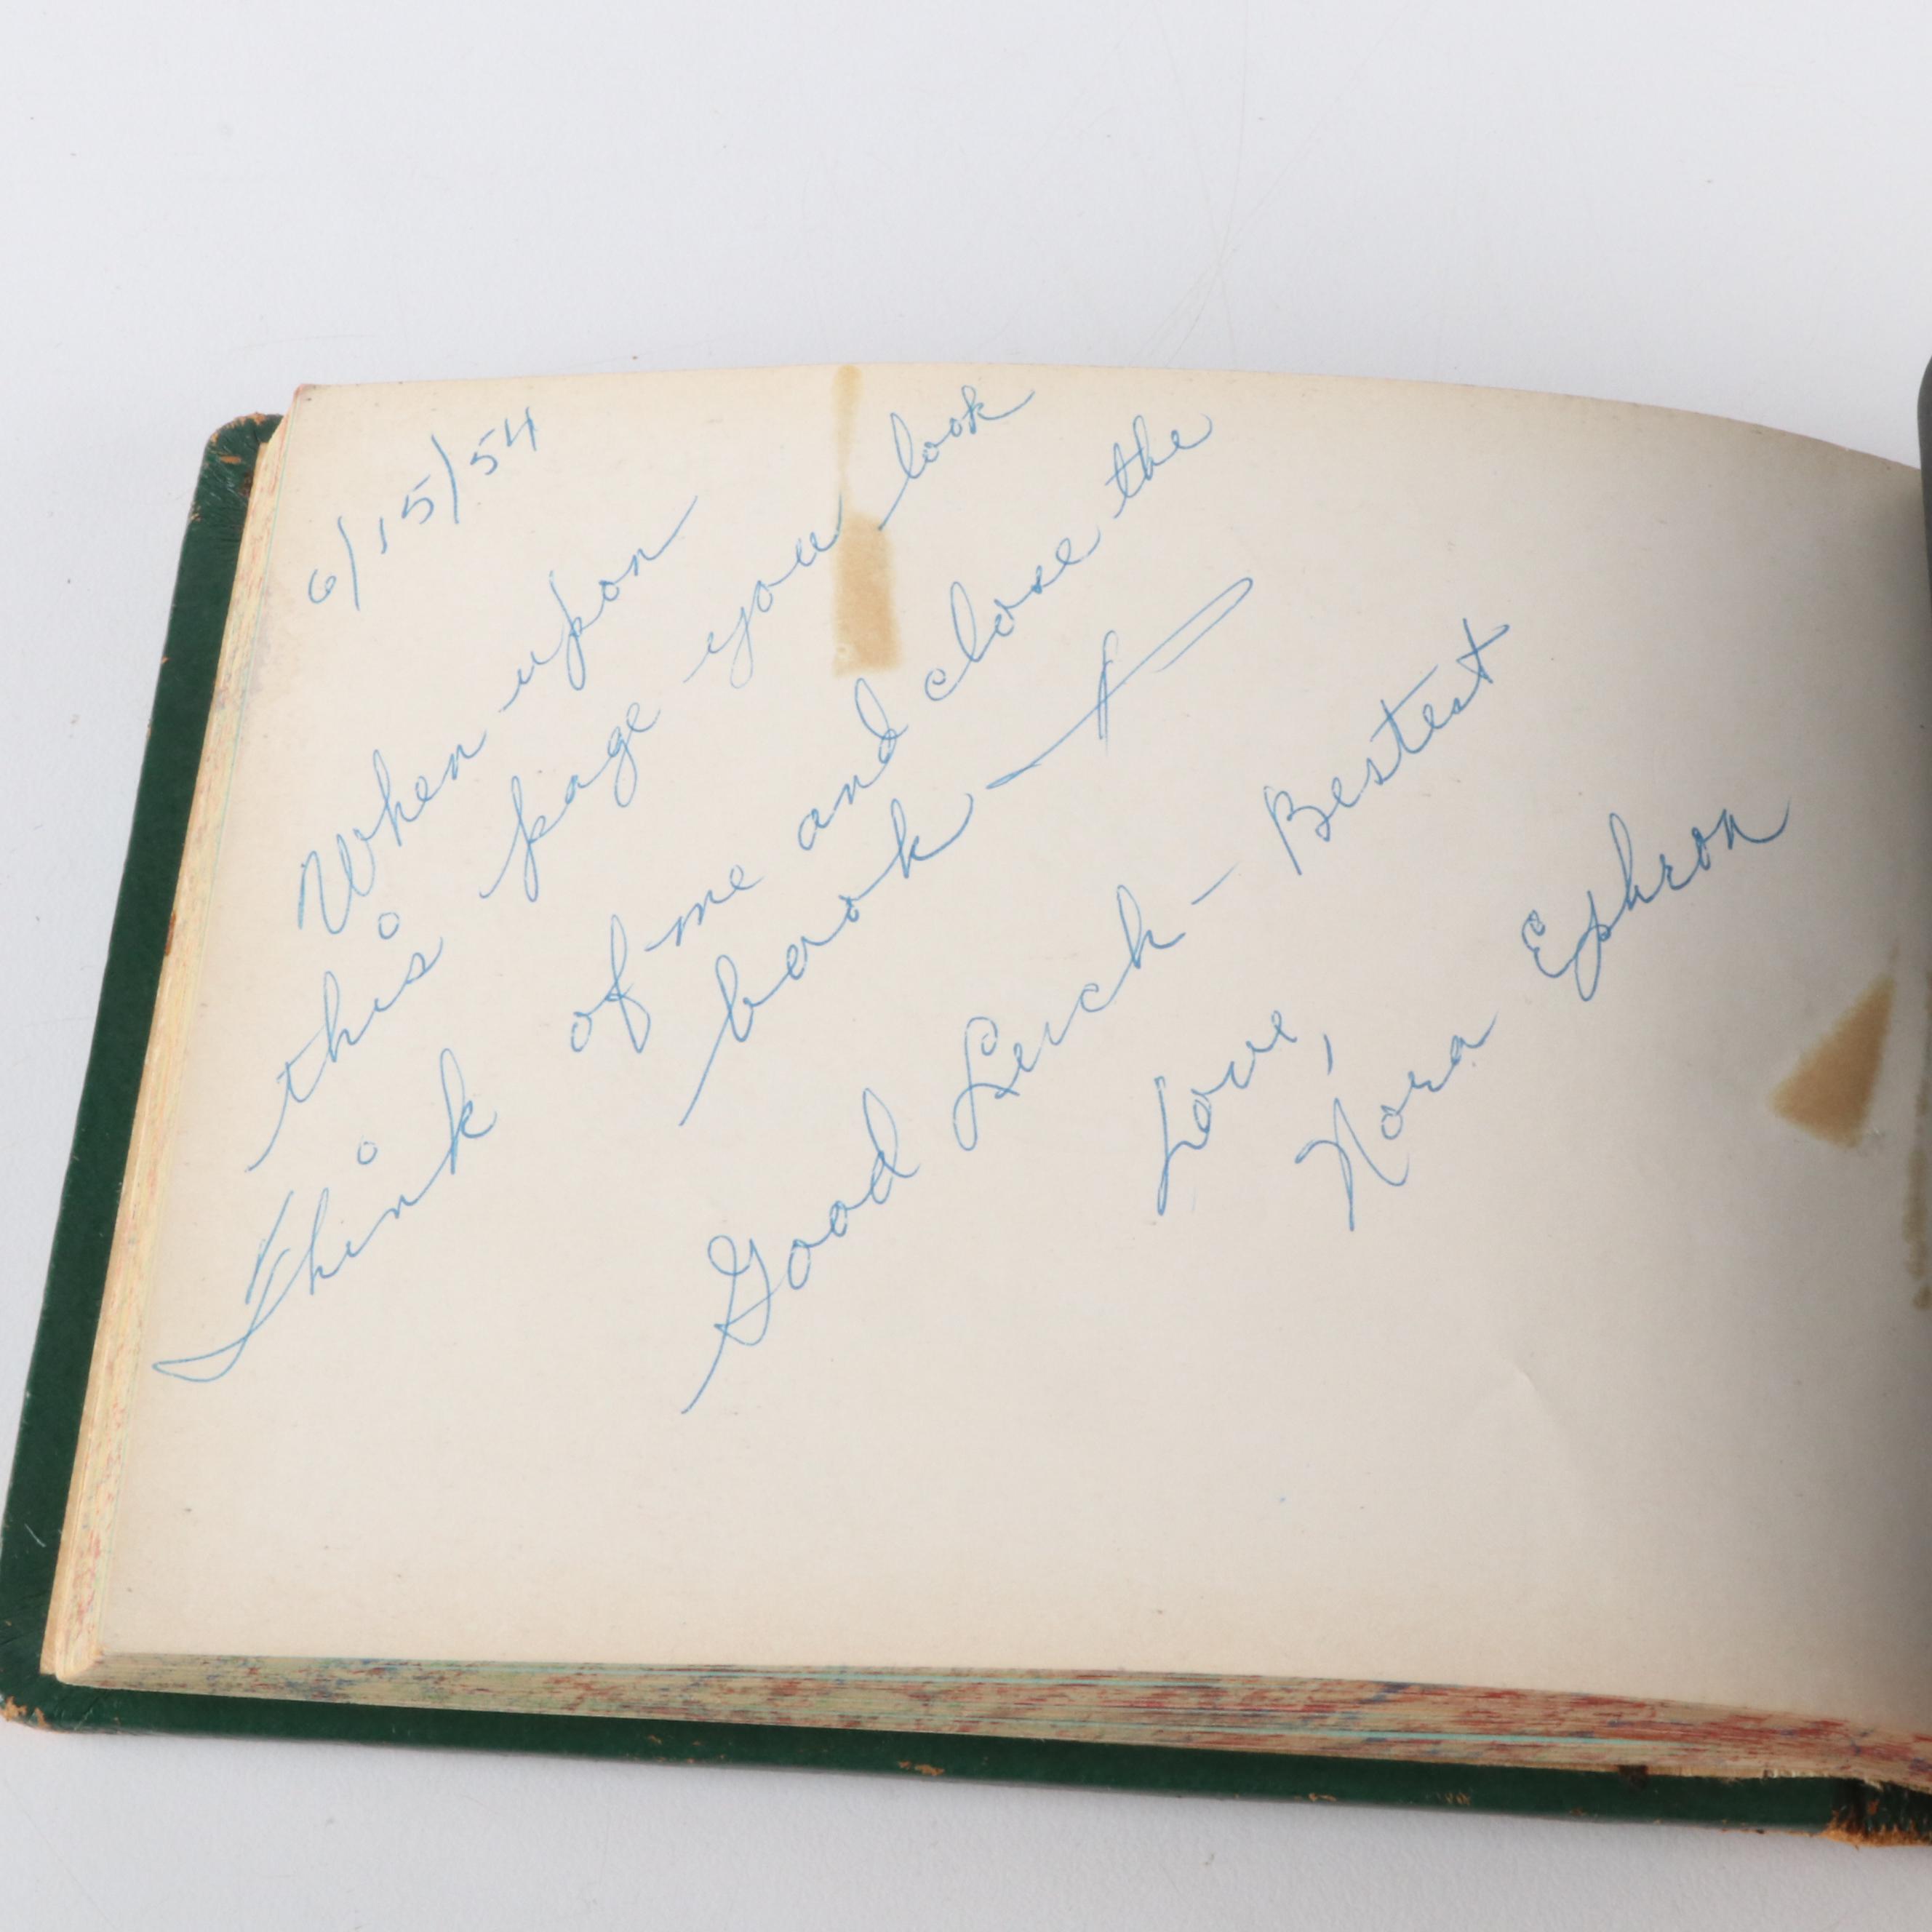 6/15/54
When upon
this page you look
Think of me and close the
book —
Good Luck - Bestest
Love,
Nora Ephron